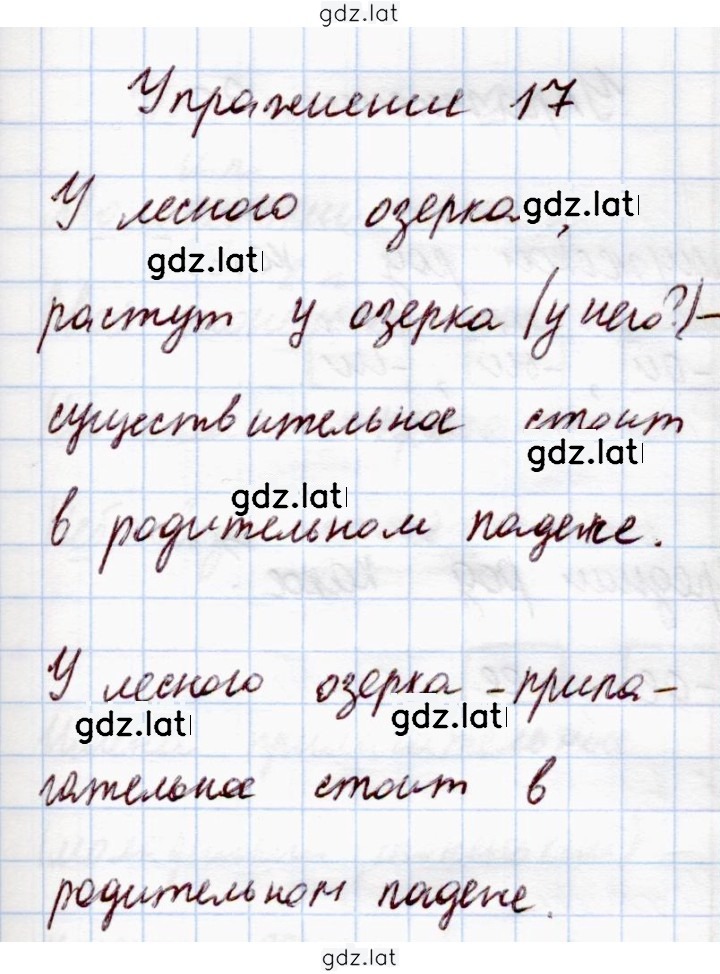 gdz.lat
Упражнение 17
У лесного озерка, gdz.lat
gdz.lat
растут у озерка (у него?)-
существительное стоит
gdz.lat
gdz.lat
в родительном падеже.
У лесного озерка - прила-
gdz.lat gdz.lat
гательное стоит в
родительном падеже.
gdz.lat